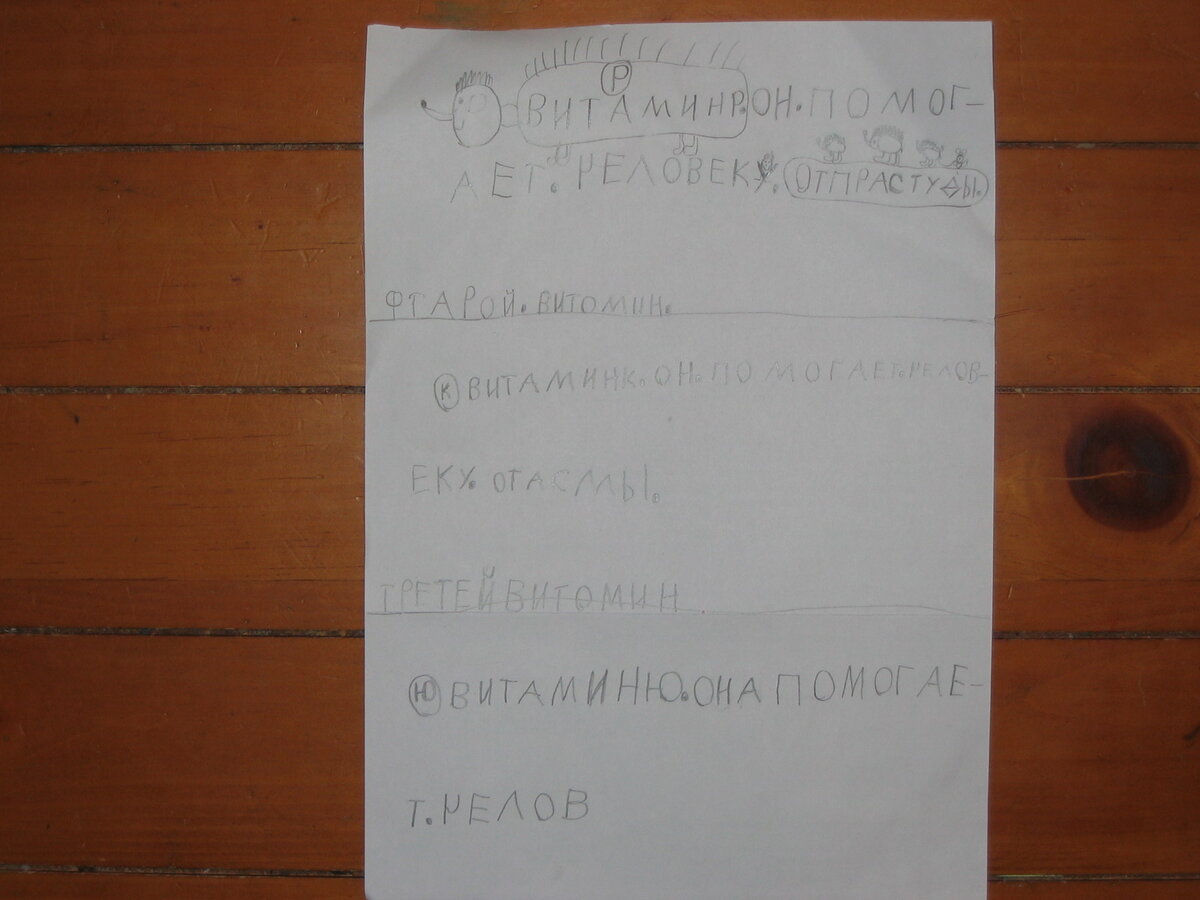 Р
ВИТАМИНР.ОН.ПОМОГ-
АЕТ. ЧЕЛОВЕКУ. ОТПРАСТУДЫ.
ФТАРОЙ. ВИТОМИН.
К ВИТАМИНК. ОН. ПОМОГАЕТ. ЧЕЛОВ-
ЕКУ. ОТАСМЫ.
ТРЕТЕЙ ВИТОМИН
Ю ВИТАМИНЮ. ОНА ПОМОГАЕ-
Т. ЧЕЛОВ